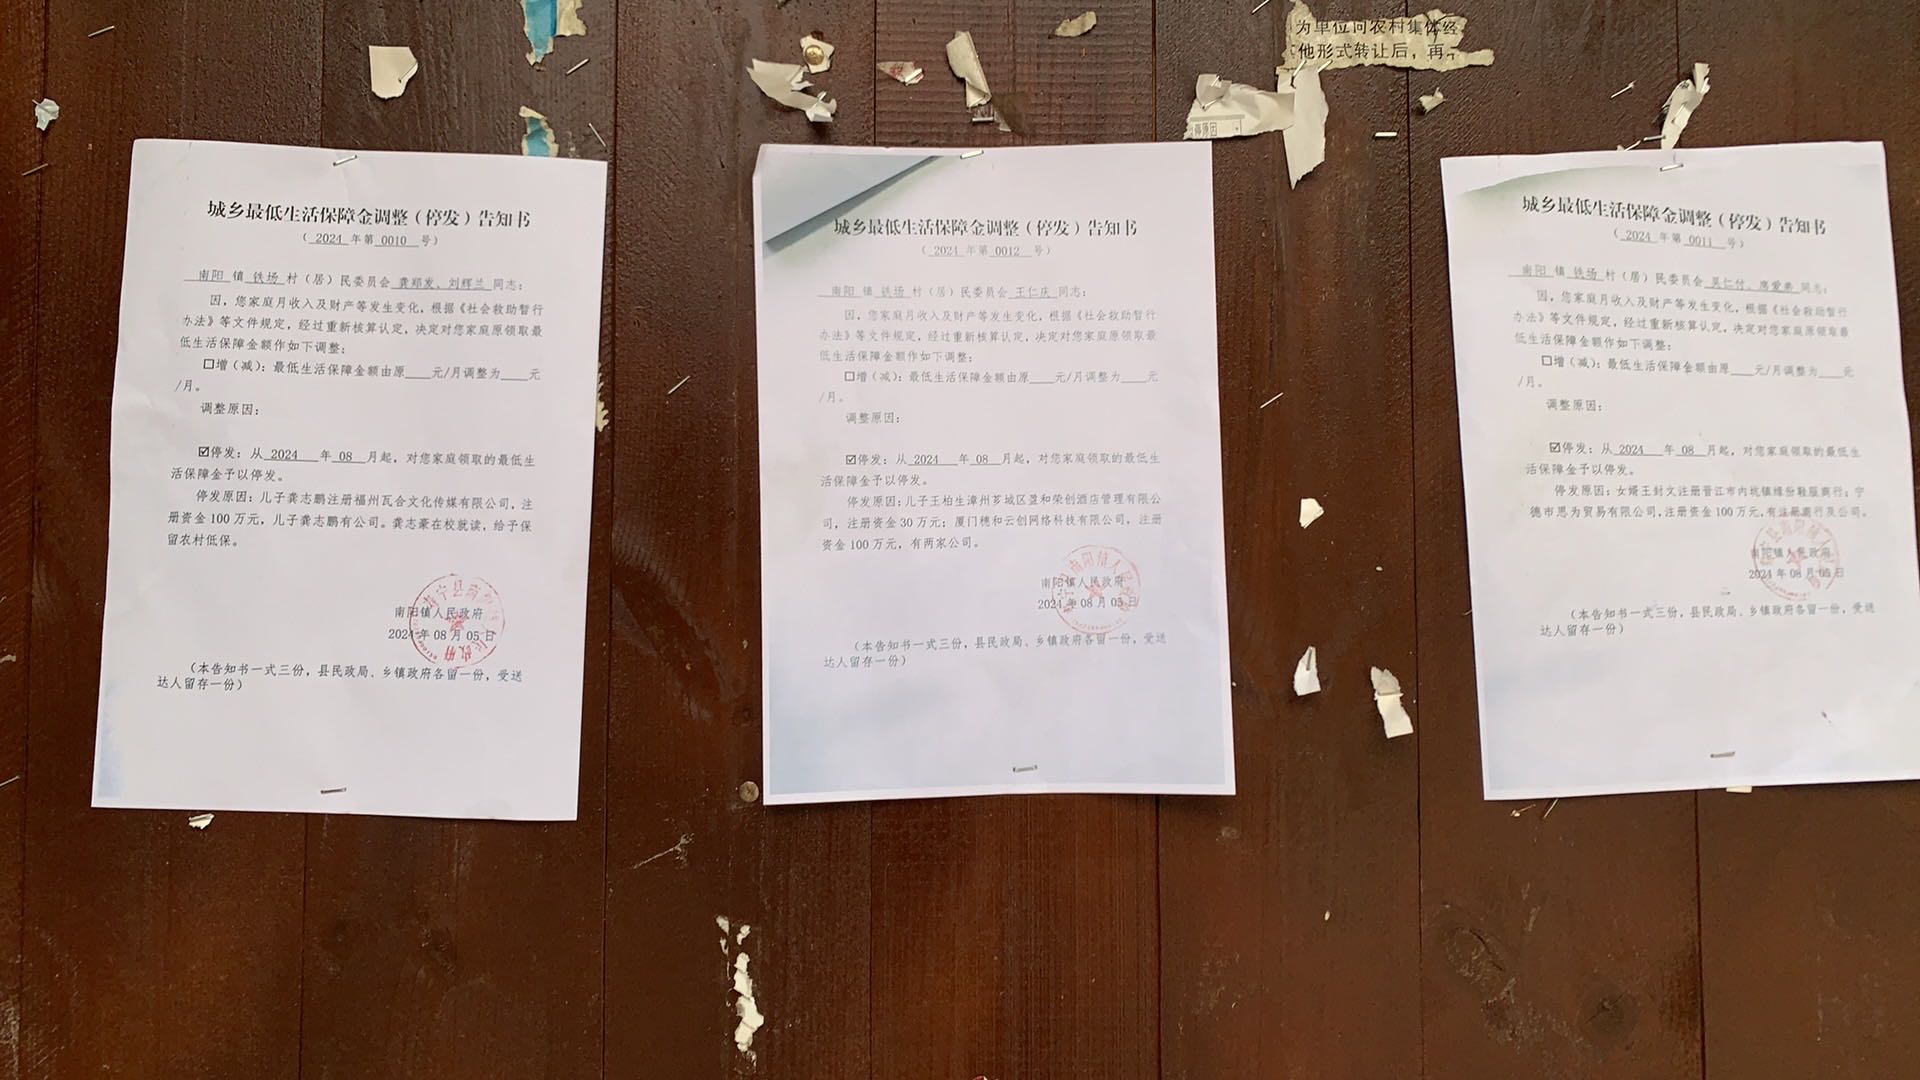 为单位向农村集体经
他形式转让后，再
城乡最低生活保障金调整（停发）告知书
（ 2024 年第 0010 号）
南阳 镇 铁场 村（居）民委员会 龚郑发、刘辉兰 同志：
因，您家庭月收入及财产等发生变化，根据《社会救助暂行
办法》等文件规定，经过重新核算认定，决定对您家庭原领取最
低生活保障金额作如下调整：
☐增（减）：最低生活保障金额由原____元/月调整为____元
/月。
调整原因：
☑停发：从 2024 年 08 月起，对您家庭领取的最低生
活保障金予以停发。
停发原因：儿子龚志鹏注册福州瓦合文化传媒有限公司，注
册资金 100 万元，儿子龚志鹏有公司。龚志豪在校就读，给予保
留农村低保。
南阳镇人民政府
2024 年 08 月 05 日
（本告知书一式三份，县民政局、乡镇政府各留一份，受送
达人留存一份）
城乡最低生活保障金调整（停发）告知书
（ 2024 年第 0012 号）
南阳 镇 铁场 村（居）民委员会 王仁庆 同志：
因，您家庭月收入及财产等发生变化，根据《社会救助暂行
办法》等文件规定，经过重新核算认定，决定对您家庭原领取最
低生活保障金额作如下调整：
☐增（减）：最低生活保障金额由原____元/月调整为____元
/月。
调整原因：
☑停发：从 2024 年 08 月起，对您家庭领取的最低生
活保障金予以停发。
停发原因：儿子王柏生漳州芗城区盈和荣创酒店管理有限公
司，注册资金 30 万元；厦门穗和云创网络科技有限公司，注册
资金 100 万元，有两家公司。
南阳镇人民政府
2024 年 08 月 05 日
（本告知书一式三份，县民政局、乡镇政府各留一份，受送
达人留存一份）
城乡最低生活保障金调整（停发）告知书
（ 2024 年第 0011 号）
南阳 镇 铁场 村（居）民委员会 吴仁付、席爱弟 同志：
因，您家庭月收入及财产等发生变化，根据《社会救助暂行
办法》等文件规定，经过重新核算认定，决定对您家庭原领取最
低生活保障金额作如下调整：
☐增（减）：最低生活保障金额由原____元/月调整为____元
/月。
调整原因：
☑停发：从 2024 年 08 月起，对您家庭领取的最低生
活保障金予以停发。
停发原因：女婿王封文注册晋江市内坑镇缘份鞋服商行；宁
德市思为贸易有限公司，注册资金 100 万元，有注册商行及公司。
南阳镇人民政府
2024 年 08 月 05 日
（本告知书一式三份，县民政局、乡镇政府各留一份，受送
达人留存一份）